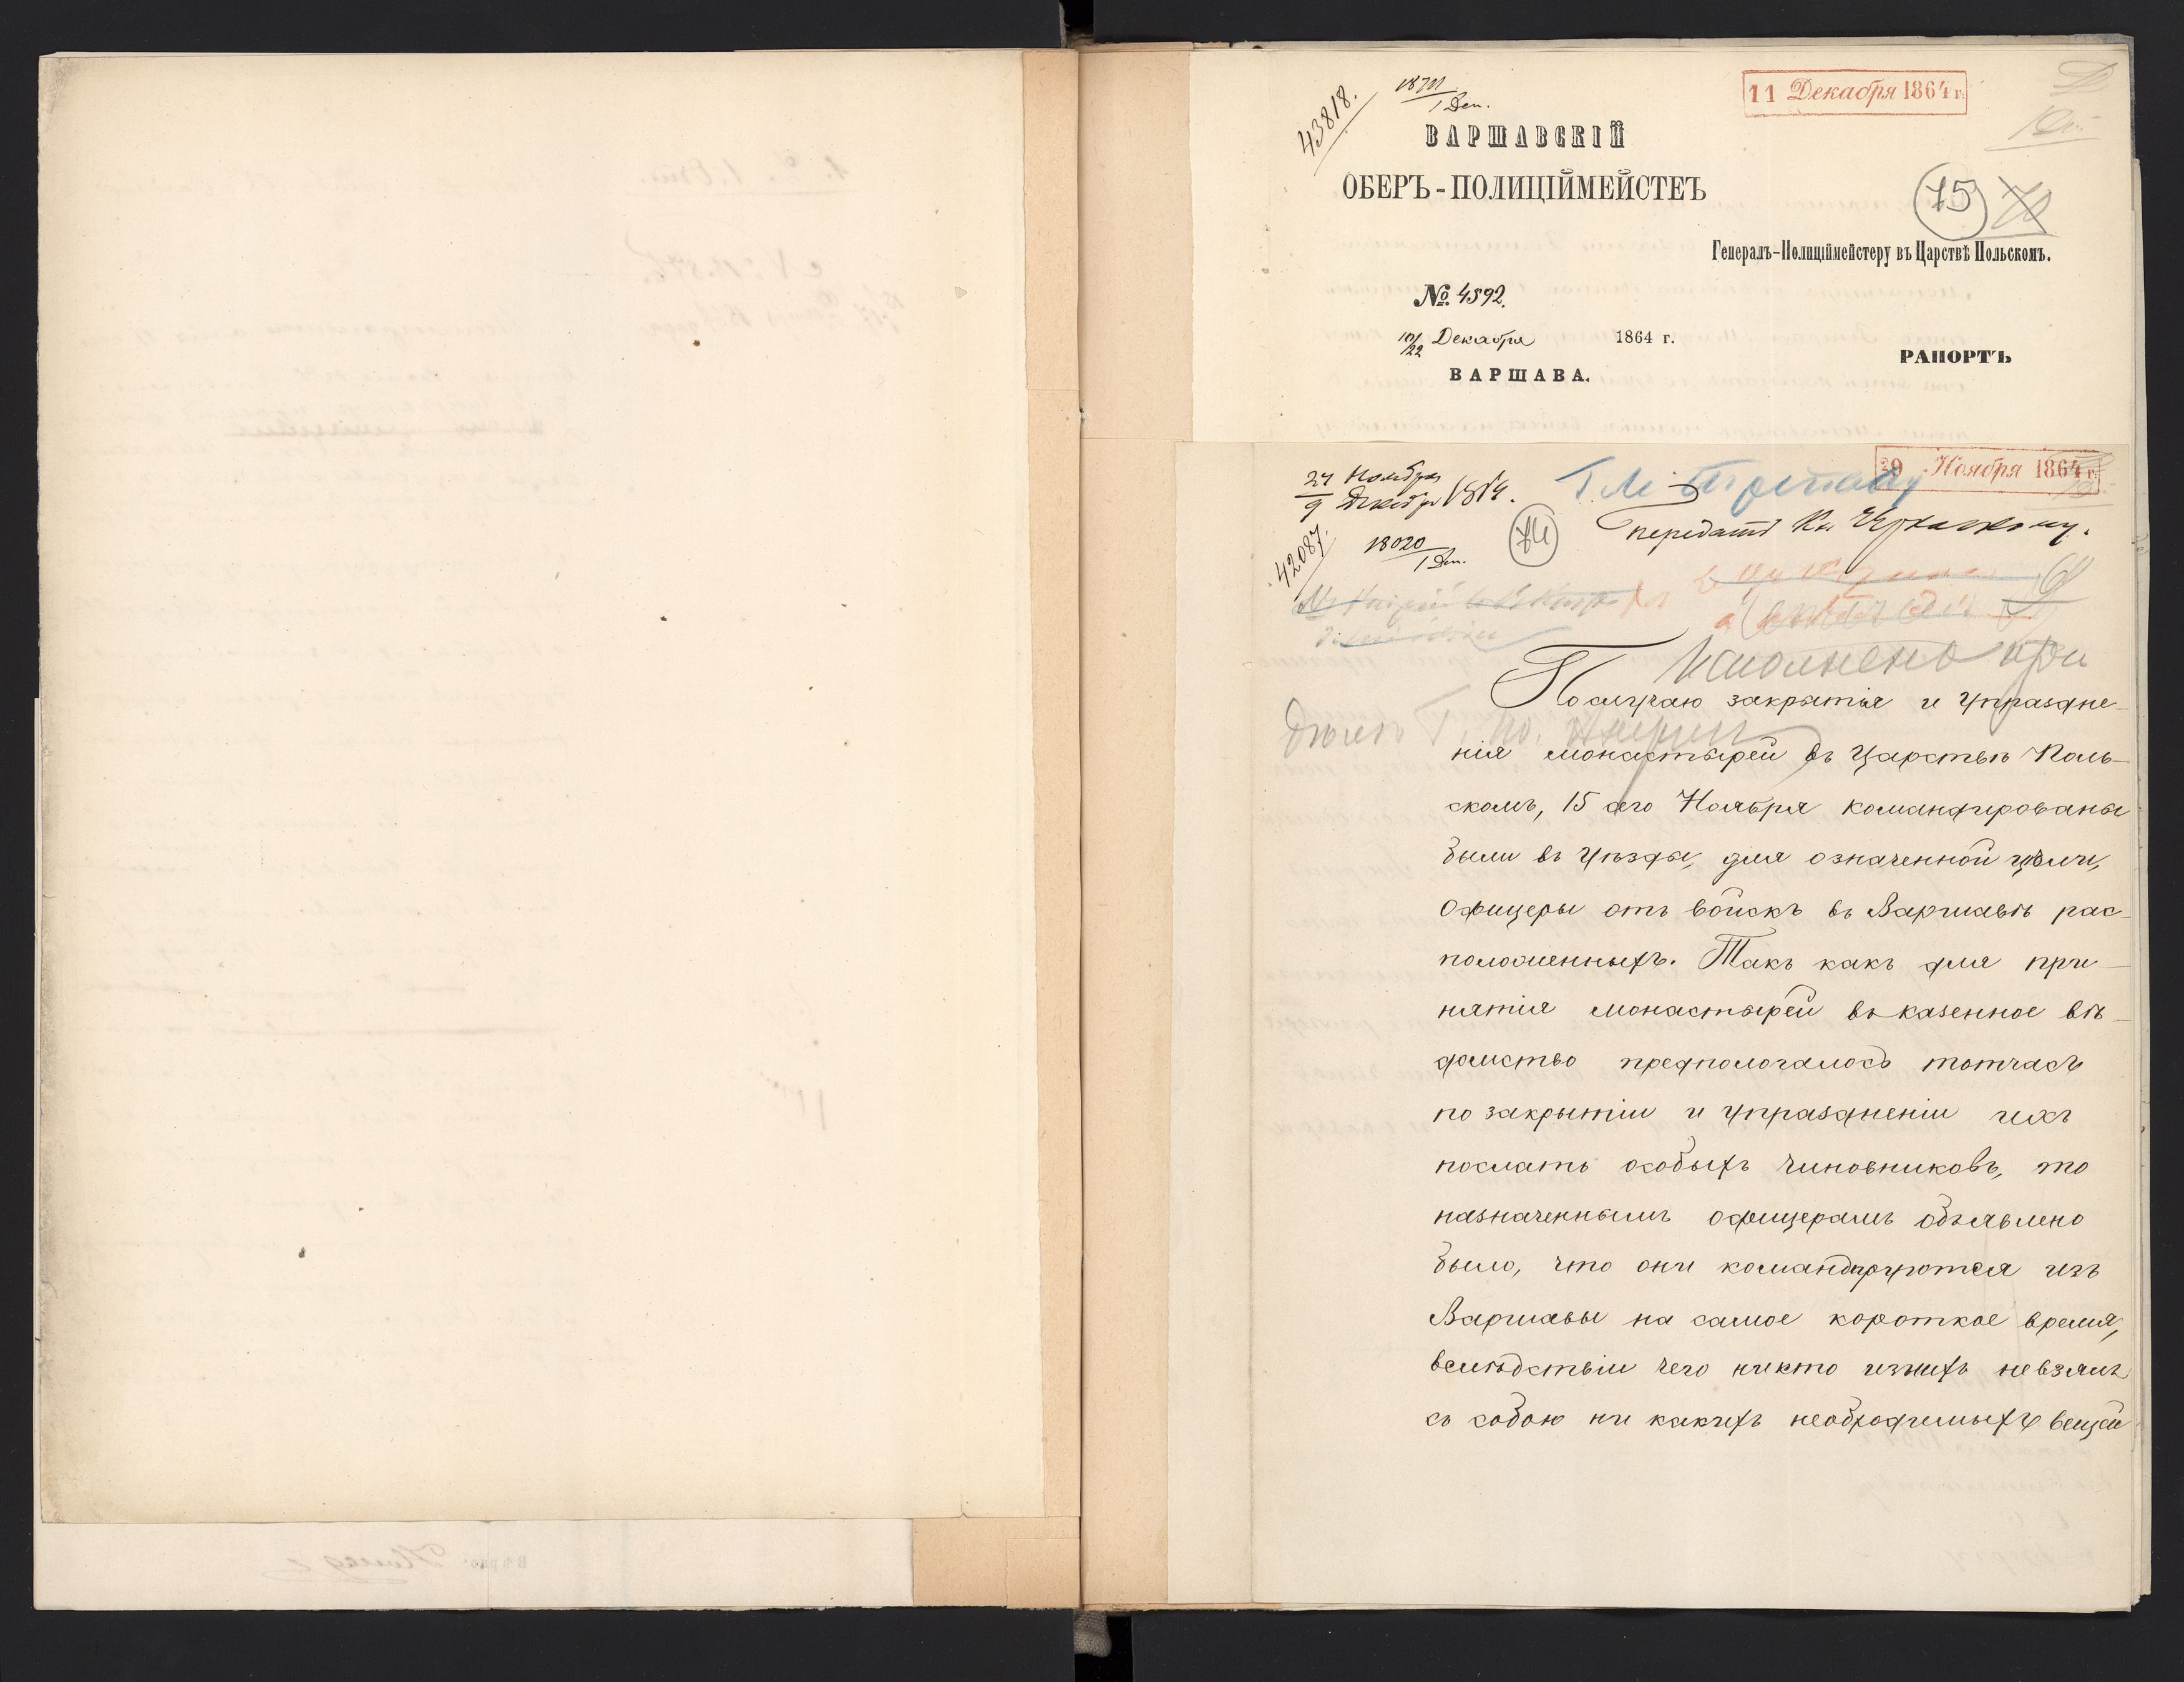 43818.
18711
1 Деп.
11 Декабря 1864 г.
ВАРШАВСКІЙ
ОБЕРЪ-ПОЛИЦІЙМЕЙСТЕЪ
75
Генералъ-Полиціймейстеру въ Царствѣ Польскомъ.
№ 4592.
10/22 Декабря 1864 г.
ВАРШАВА.
РАПОРТЪ
29 Ноября 1864 г.
27 Ноября
9 Декабря 1864.
42087.
18020
1 Деп.
74
передать Кн Черкаскому.
Исполнено при
По случаю закрытія и упраздне-
нія монастырей въ Царствѣ Поль-
скомъ, 15 сего Ноября командированы
были въ уѣзды, для означенной цѣли,
Офицеры отъ войскъ въ Варшавѣ рас-
положенныхъ. Такъ какъ для при-
нятія монастырей въ казенное вѣ-
домство предпологалось тотчасъ
по закрытіи и упраздненіи ихъ
послать особыхъ чиновниковъ, то
назначеннымъ офицерамъ объявлено
было, что они командируются изъ
Варшавы на самое короткое время,
вслѣдствіи чего никто изъ нихъ не взялъ
съ собою ни какихъ необходимыхъ вещей